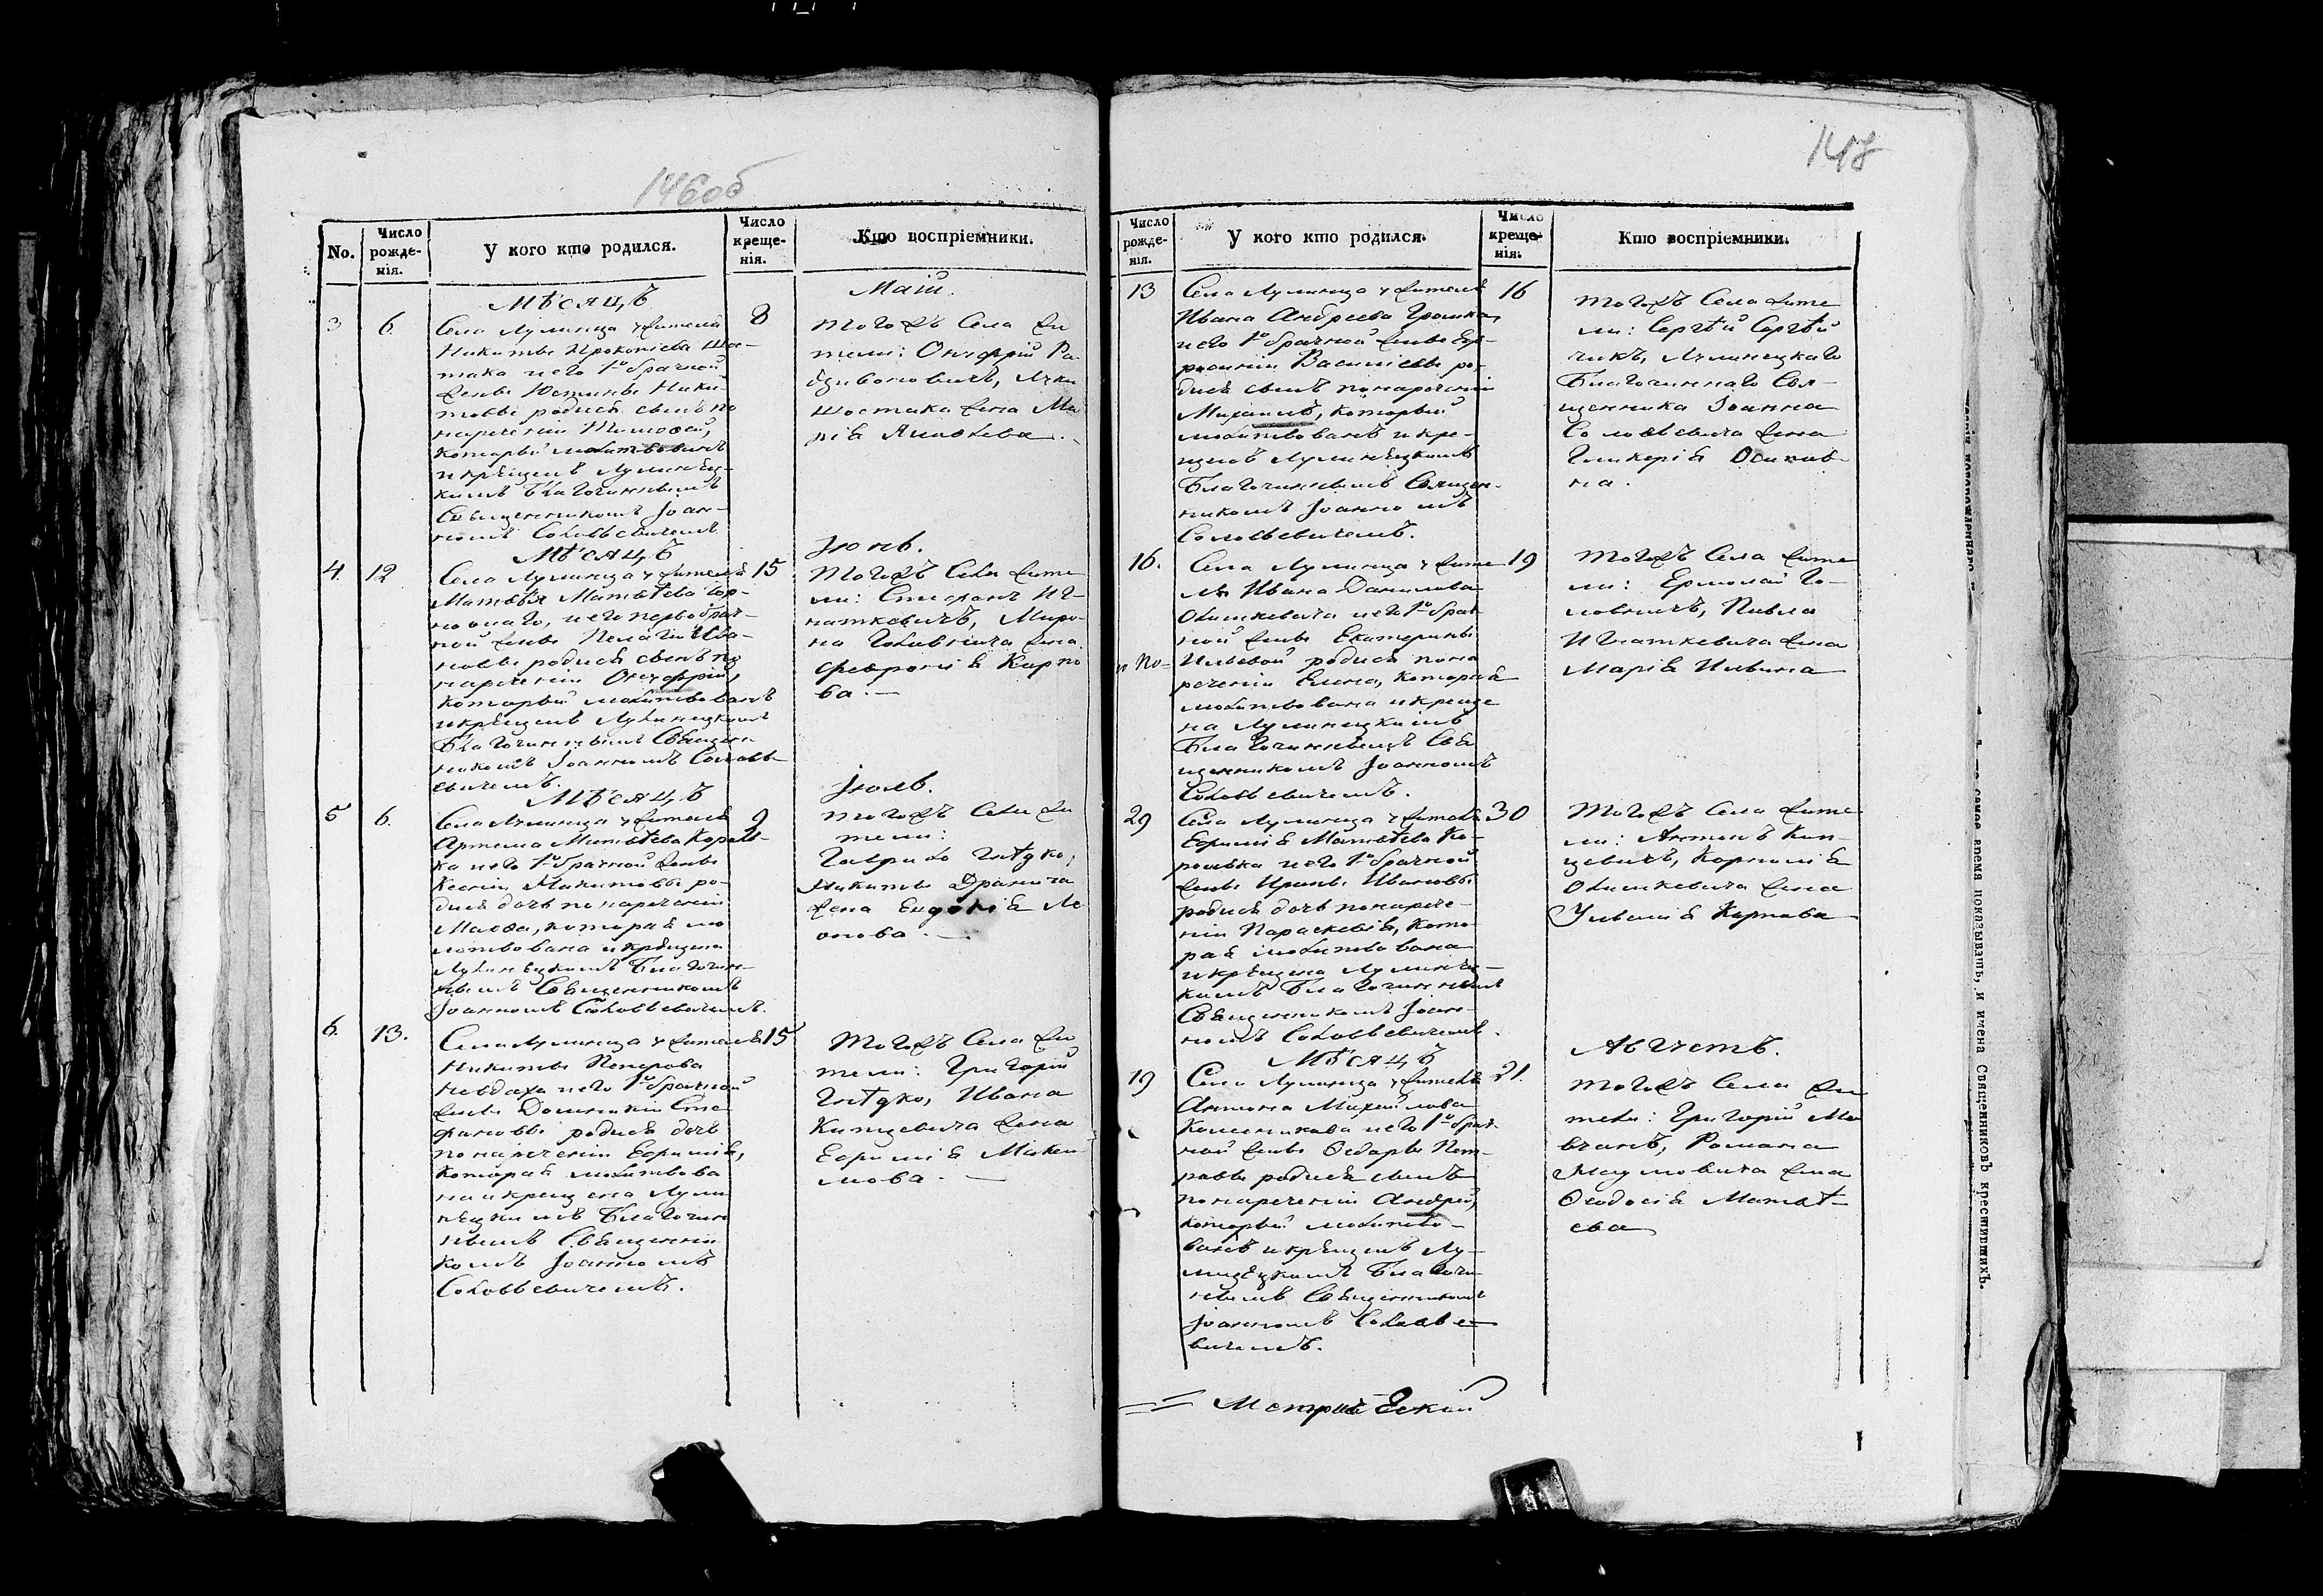 146об
No.
Число рожде-нія.
У кого кто родился.
Число креще-нія.
Кто воспріемники.
Мѣсяцъ
Маій.
3
6
8
Села Лулинца жителя
Никиты Прокопіева
така и его 1о брачной
жены Юстины Ники-
товы родися сынъ по
нареченіи Тимофей,
который молитвованъ
и крещенъ Лулинец-
кимъ Благочиннымъ
Священникомъ Іоан-
номъ Соловьевичемъ
тогожъ Села жи
тели: Онуфрій Ра-
Шостака жена Ма
рія Яковлева.
Мѣсяцъ
Іюнь.
4.
12
15
Села Лулинца жителя
Матвѣя Матвѣева
и его первобрач-
ной жены Пелагіи Ива-
новы родися сынъ по
нареченіи Онуфрій,
который молитвованъ
и крещенъ Лулинецкимъ
Благочиннымъ Священ
никомъ Іоанномъ Соловь-
евичемъ.
Тогожъ Села жите
ли: Стефанъ Иг-
наткевичъ, Миро-
на Головнича жена
Февронія Карпо
ва. —
Мѣсяцъ
Іюль.
5
6.
9
Села Лулинца жителя
Артема Матвѣева Король-
ка и его 1о брачной жены
Ксеніи Никитовы ро-
дися дочь по нареченіи
которая мо
литвована и крещена
Лулинецкимъ Благочин-
нымъ Священникомъ
Іоанномъ Соловьевичемъ.
тогожъ Села жи
тели:
Гаврило Гнѣдко,
Никиты Дранича
жена Евдокія Ле
онова. —
6.
13.
15
Села Лулинца жителя
Никиты
Невдаха и его 1о брачной
жены Домникіи Сте
фановы родися дочь
по нареченіи Евфимія,
которая молитвова
на и крещена Лули
нецкимъ Благочин
нымъ Священни
комъ Іоанномъ
Соловьевичемъ.
Тогожъ Села жи
тели: Григорій
Гнѣдко, Ивана
Купцевича жена
Евфимія Макси
мова. —
Число рожде-нія.
У кого кто родился.
Число креще-нія.
Кто воспріемники.
13
16
Села Лулинца жителя
Ивана Андреева Громика
и его 1о брачной жены Евф-
росиніи Василіевы ро-
дися сынъ по нареченіи
Михаилъ, который
молитвованъ и кре-
щенъ Лулинецкимъ
Благочиннымъ Священ-
никомъ Іоанномъ
Соловьевичемъ.
тогожъ Села жите
ли: Сергѣй Сергѣй
чикъ, Лулинецкаго
Благочиннаго Свя-
щенника Іоанна
Соловьевича жена
Гликерія Осипов-
на.
16.
19
Села Лулинца жите
ля Ивана Данилова
Олишкевича и его 1о брач
ной жены Екатерины
Ильевой родися по на
реченіи Елена, которая
молитвована и креще
на Лулинецкимъ
Благочиннымъ Свя
щенникомъ Іоанномъ
Соловьевичемъ.
Тогожъ Села жите
ли: Ермолай Го-
ловничъ, Павла
Игнаткевича жена
Марія Ильина
29
30
Села Лулинца жителя
Ефима Матвѣева Ко-
ролька и его 1о брачной
жены Ирины Ивановы
родися дочь по нарече-
ніи Параскевія, кото-
рая молитвована
и крещена Лулинец-
кимъ Благочиннымъ
Священникомъ Іоан-
номъ Соловьевичемъ.
Тогожъ Села жите
ли: Антонъ Куп-
цевичъ, Корнилія
Олишкевича жена
Уліанія Карпова
Мѣсяцъ
Августъ.
19
21.
Села Лулинца жителя
Антона Михайлова
Колесникова и его 1о брач
ной жены Ѳедоры Пет-
ровы родися сынъ
по нареченіи Андрей,
который молитво-
ванъ и крещенъ Лу-
линецкимъ Благочи-
ннымъ Священникомъ
Іоанномъ Соловье-
вичемъ.
Тогожъ Села жи
тели: Григорій Мо
вчанъ, Романа
Наумовича жена
Ѳеодосія Матвѣ-
ева
самое время показывать, и имена Священниковъ крестившихъ.